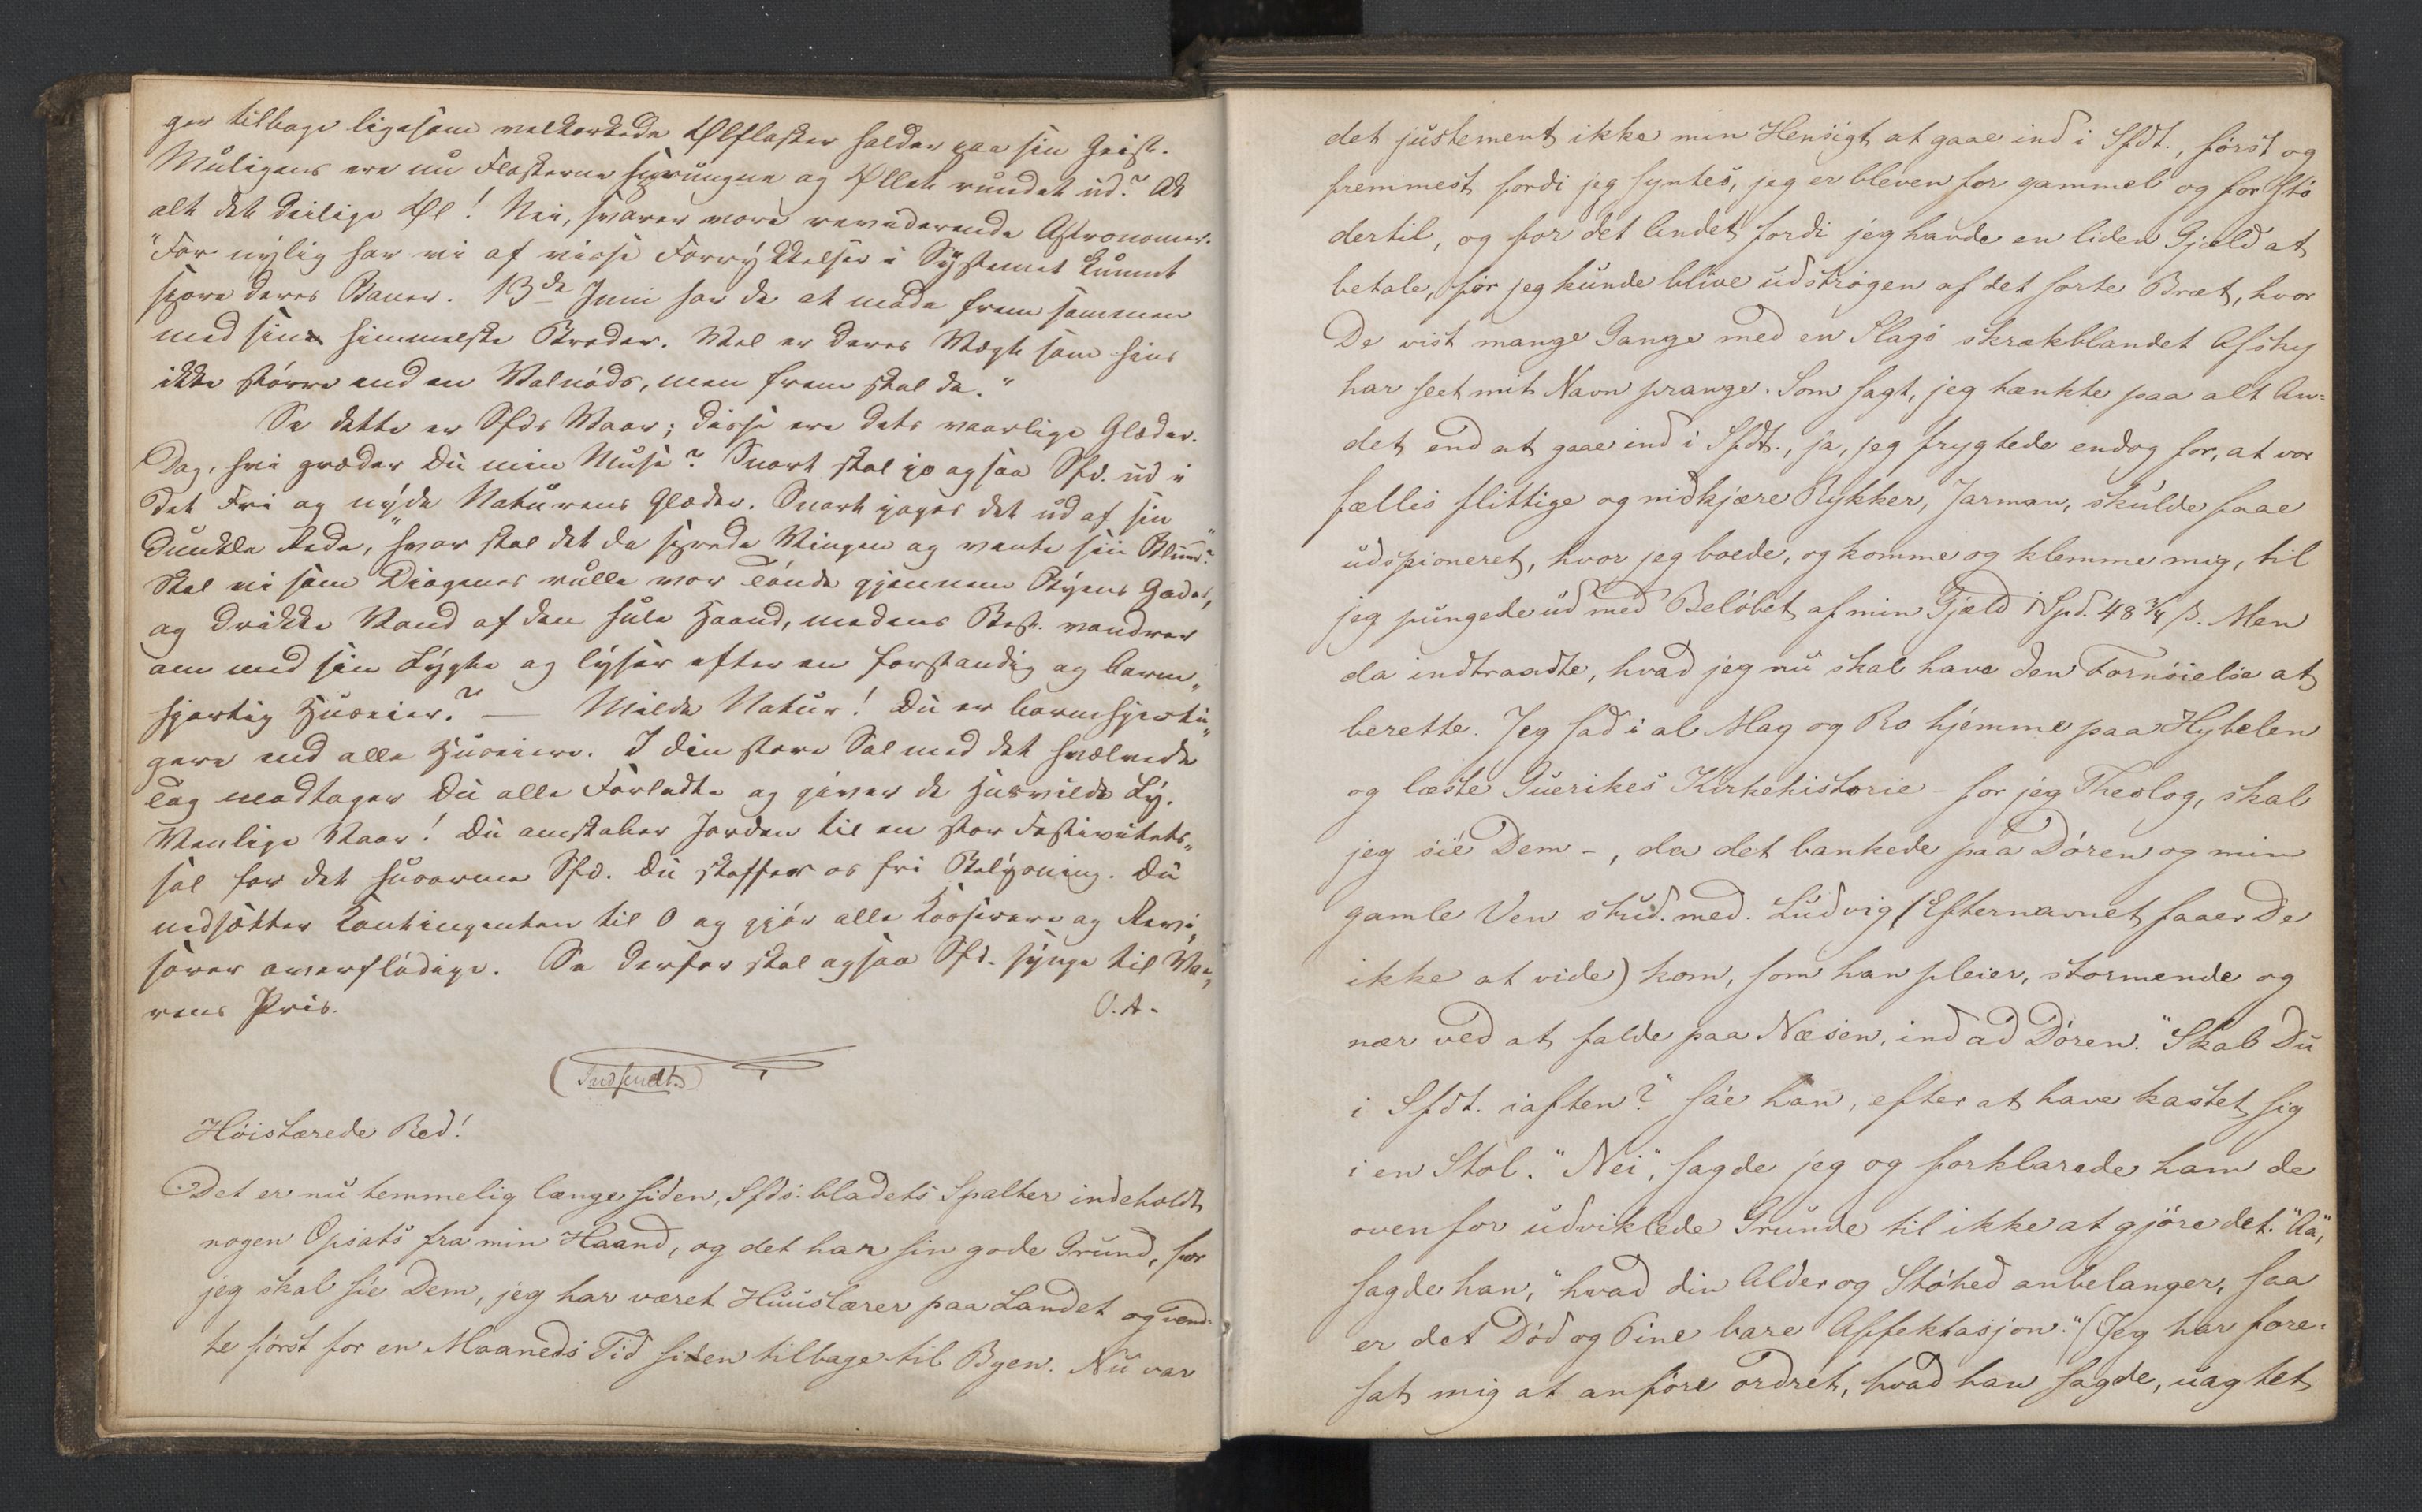 ger tilbage ligesom velkorkede Ølflasker holder paa sin Geist.
Muligens ere nu Flaskerne sprungne og Øllet rundet ud? Ak
alt det deilige Øl! Nei, svarer vore reviderende Astronomer.
"For nylig har vi af visse Forrykkelser i Systemet kunnet
spore deres Baner. 13de Juni har de at møde frem sammen
med sine himmelske Brødre. Vel er deres Vægt som hens
ikke større end en Valnøds, men frem skal de."
Se dette er Sfds Vaar; disse ere dets vaarlige Glæder.
Dog, hvi græder Du min Muse? Snart skal jo ogsaa Sfd. ud i
det Fri og nyde Naturens Glæder. Snart jages det ud af sin
dunkle Rede, "hvor skal det da sprede Vingen og vente sin Blund"?
Skal vi som Diogenes rulle vor Tønde gjennem Byens Gader,
og drikke Vand af den hule Haand, medens Best. vandrer
om med sin Lygte og lyser efter en forstandig og barm„
hjertig Huseier? — Milde Natur! Du er barmhjerti„
gere end alle Huseiere. I din store Sal med det hvælvede
Tag modtager Du alle Forladte og giver de Husvilde Ly.
Venlige Vaar! Du omskaber Jorden til en stor Festivitets„
sal for det husarme Sfd. Du skaffer os fri Belysning. Du
nedsætter Kontingenten til 0 og gjør alle Kasserere og Revi„
sorer overflødige. Se derfor skal ogsaa Sfd. synge til Vaa„
rens Pris. O.A.
(Indsendt.)
Høistærede Red!
Det er nu temmelig længe siden, Sfds: bladets Spalter indeholdt
nogen Opsats fra min Haand, og det har sin gode Grund, for
jeg skal sie Dem, jeg har været Huuslærer paa Landet og vend-
te först for en Maaneds Tid siden tilbage til Byen. Nu var
det justement ikke min Hensigt at gaae ind i Sfdt., först og
fremmest fordi jeg syntes, jeg er bleven for gammel og for stö
dertil, og for det Andet fordi jeg havde en liden Gjæld at
betale, för jeg kunde blive udströgen af det sorte Bræt, hvor
De vist mange Gange med en Slags skrækblandet Afsky
har seet mit Navn prange. Som sagt, jeg tænkte paa alt An=
det end at gaae ind i Sfdt., ja, jeg frygtede endog for, at vor
fælles flittige og nidkjære Rykker, Jarman, skulde faae
udspioneret, hvor jeg boede, og komme og klemme mig, til
jeg pungede ud med Belöbet af min Gjæld 1 Spd. 48 3/4 ß. Men
da indtraadte, hvad jeg nu skal have den Fornöielse at
berette. Jeg sad i al Mag og Ro hjemme paa Hybelen
og læste Guerikes Kirkehistorie – for jeg Theolog, skal
jeg sie Dem –, da det bankede paa Dören og min
gamle Ven stud. med. Ludvig (Efternavnet faaer De
ikke at vide) kom, som han pleier, stormende og
nær ved at falde paa Næsen, ind ad Dören. "Skal Du
i Sfdt. iaften?" sae han, efter at have kastet sig
i en Stol. "Nei", sagde jeg og forklarede ham de
ovenfor udviklede Grunde til ikke at gjöre det. "Aa",
sagde han, "hvad din Alder og Stöhed anbelanger, saa
er det Död og Pine bare Affektasjon." (Jeg har fore-
sat mig at anföre ordret, hvad han sagde, uagtet